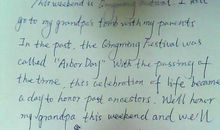 This weekend is Qingming Festival. I will
go to my grandpa's tomb with my parents
In the past, the Qingming Festival was
called "Arbor Day" With the passing of
the time, this celebration of life became
a day to honor past ancestors. We'll honor
my grandpa this weekend and we'll